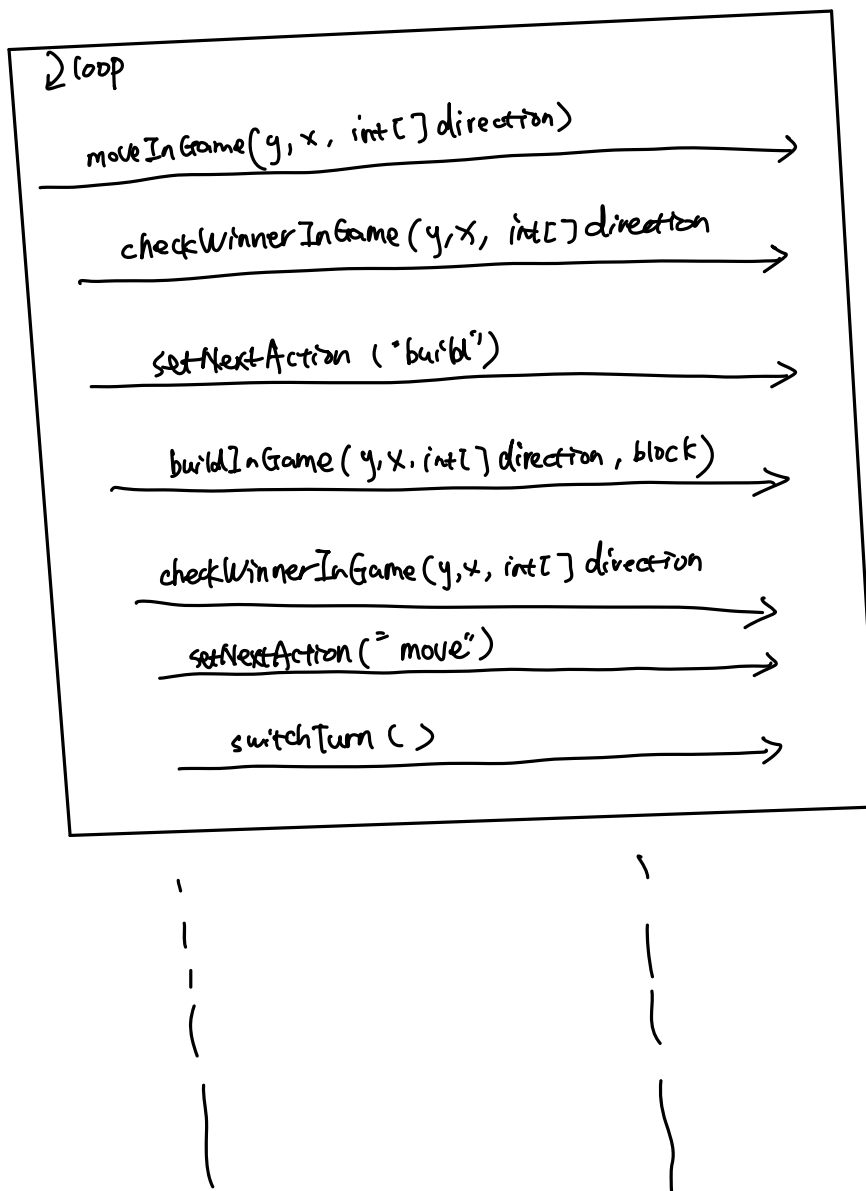 loop
moveInGame(y, x, int[] direction)
checkWinnerInGame(y, x, int[] direction
setNextAction ("build")
buildInGame(y, x, int[] direction, block)
checkWinnerInGame(y, x, int[] direction
setNextAction("move")
switchTurn()